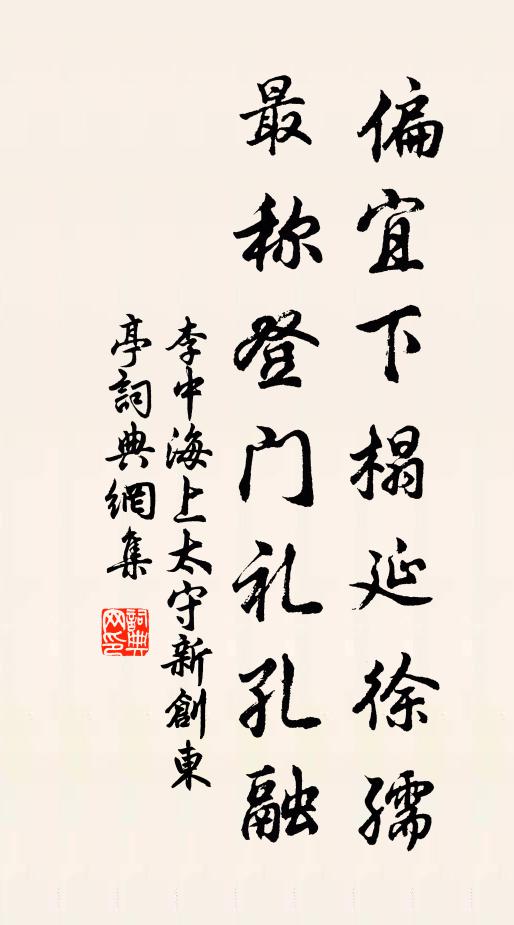 偏宜下榻延徐孺
最称登门礼孔融
李中海上太守新創東
亭詞典網集
詞典
网印